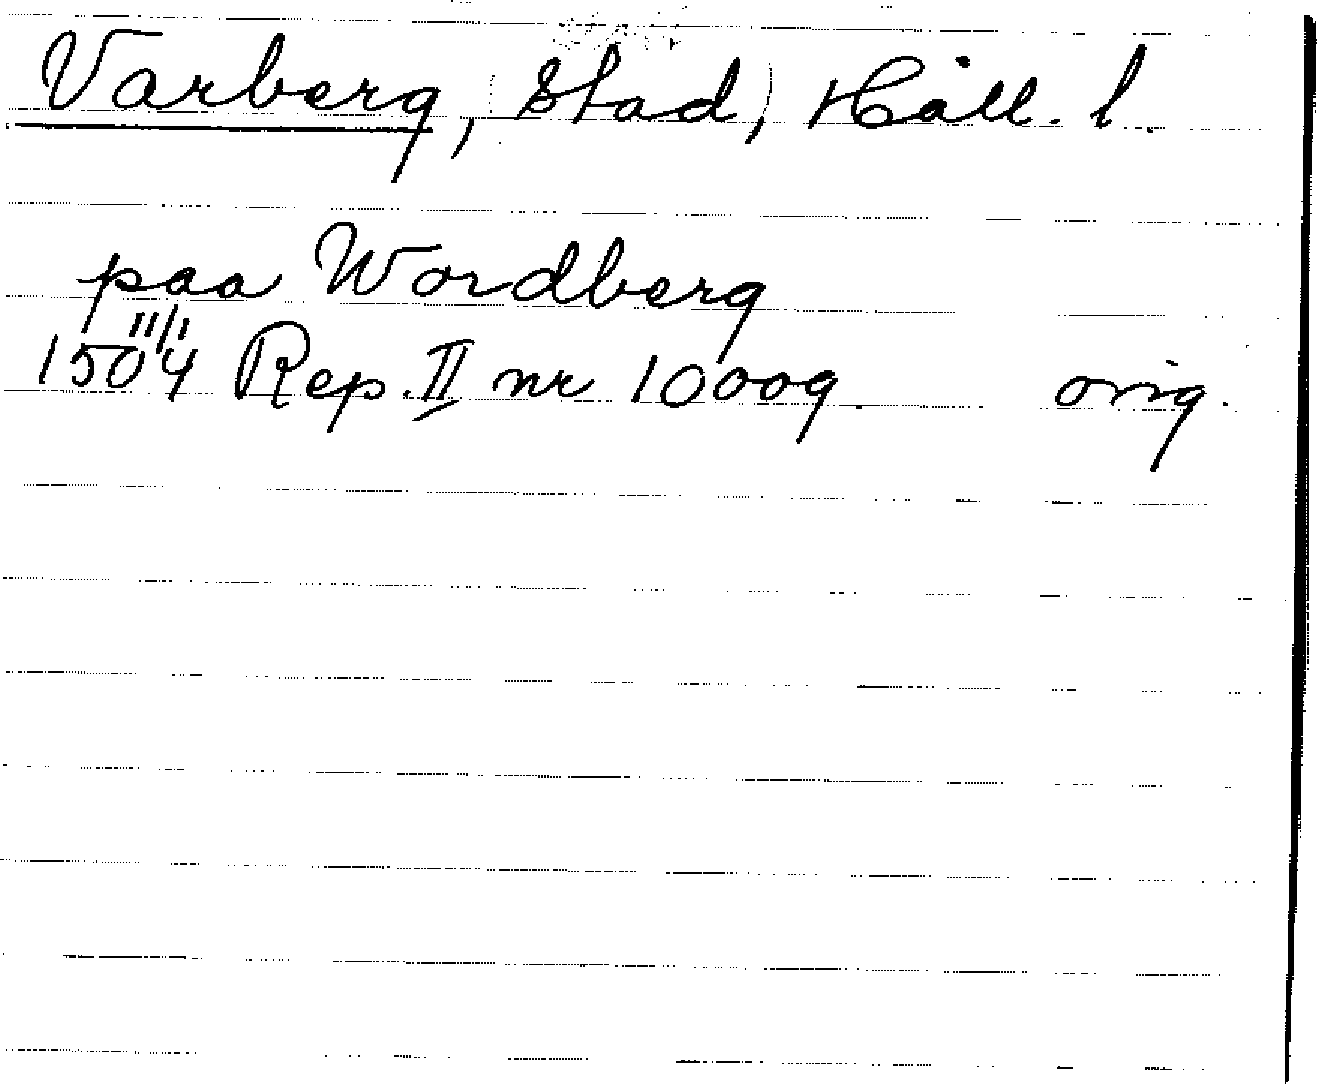 Varberg, Stad, Hall. l.
paa Wordberg
11/1
1504 Rep. II nr 10009 orig.